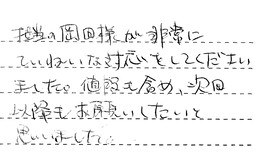 担当の岡田様が非常に
ていねいな対応をしてください
ました。値段も含め、次回
以降もお願いしたいと
思いました。